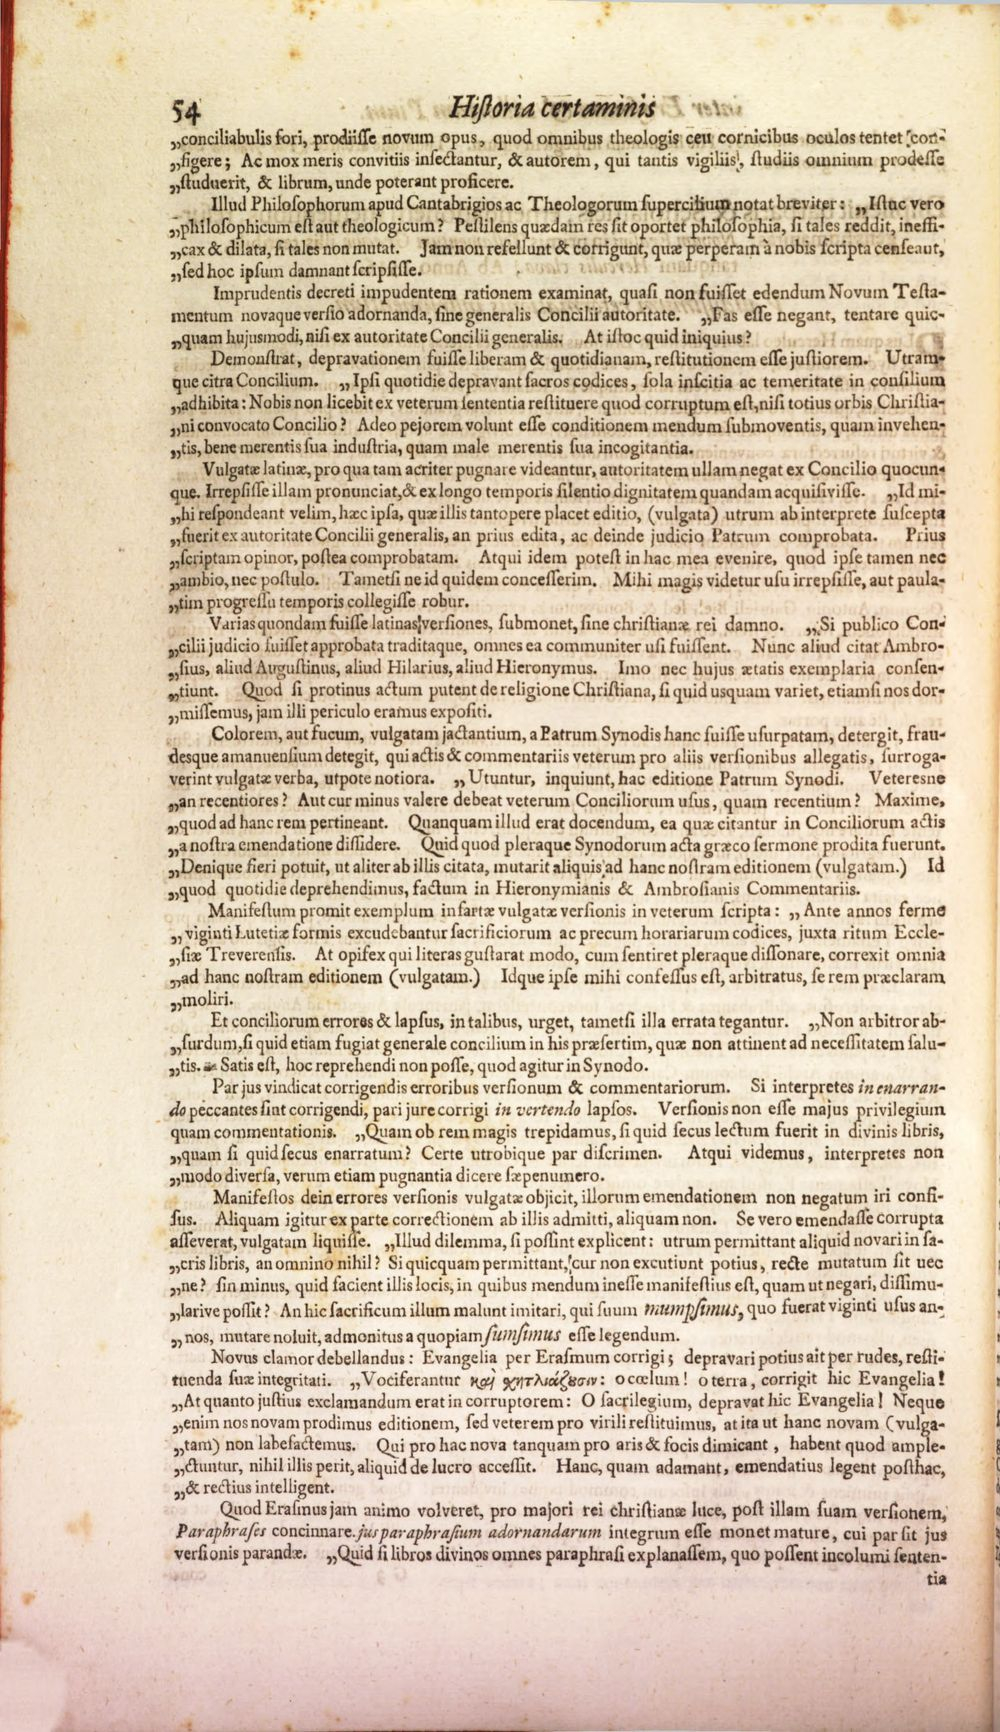 54 Historia certaminis
„conciliabulis fori, prodiisse novum opus, quod omnibus theologis ceu cornicibus oculos tentet con-
„figere; Ac mox meris convitiis insectantur, & autorem, qui tantis vigiliis, studiis omnium prodesse
„studuerit, & librum, unde poterant proficere.
Illud Philosophorum apud Cantabrigios ac Theologorum supercilium notat breviter: „Istuc vero
„philosophicum est aut theologicum? Pestilens quædam res sit oportet philosophia, si tales reddit, ineffi-
„cax & dilata, si tales non mutat. Jam non refellunt & corrigunt, quæ perperam à nobis scripta censeant,
„sed hoc ipsum damnant scripsisse.
Imprudentis decreti impudentem rationem examinat, quasi non fuisset edendum Novum Testa-
mentum novaque versio adornanda, sine generalis Concilii autoritate. „Fas esse negant, tentare quic-
„quam hujusmodi, nisi ex autoritate Concilii generalis. At istoc quid iniquius?
Demonstrat, depravationem fuisse liberam & quotidianam, restitutionem esse justiorem. Utram-
que citra Concilium. „Ipsi quotidie depravant sacros codices, sola inscitia ac temeritate in consilium
„adhibita: Nobis non licebit ex veterum sententia restituere quod corruptum est, nisi totius orbis Christia-
„ni convocato Concilio? Adeo pejorem volunt esse conditionem mendum submoventis, quam invehen-
„tis, bene merentis sua industria, quam male merentis sua incogitantia.
Vulgatæ latinæ, pro qua tam acriter pugnare videantur, autoritatem ullam negat ex Concilio quocun-
que. Irrepsisse illam pronunciat, & ex longo temporis silentio dignitatem quandam acquisivisse. „Id mi-
„hi respondeant velim, hæc ipsa, quæ illis tantopere placet editio, (vulgata) utrum ab interprete suscepta
„fuerit ex autoritate Concilii generalis, an prius edita, ac deinde judicio Patrum comprobata. Prius
„scriptam opinor, postea comprobatam. Atqui idem potest in hac mea evenire, quod ipse tamen nec
„ambio, nec postulo. Tametsi ne id quidem concesserim. Mihi magis videtur usu irrepsisse, aut paula-
„tim progressu temporis collegisse robur.
Varias quondam fuisse latinas versiones, submonet, sine christianæ rei damno. „Si publico Con-
„cilii judicio fuisset approbata traditaque, omnes ea communiter usi fuissent. Nunc aliud citat Ambro-
„sius, aliud Augustinus, aliud Hilarius, aliud Hieronymus. Imo nec hujus ætatis exemplaria consen-
„tiunt. Quod si protinus actum putent de religione Christiana, si quid usquam variet, etiamsi nos dor-
„missemus, jam illi periculo eramus expositi.
Colorem, aut fucum, vulgatam jactantium, a Patrum Synodis hanc fuisse usurpatam, detergit, frau-
desque amanuensium detegit, qui actis & commentariis veterum pro aliis versionibus allegatis, surroga-
verint vulgatæ verba, utpote notiora. „Utuntur, inquiunt, hac editione Patrum Synodi. Veteresne
„an recentiores? Aut cur minus valere debeat veterum Conciliorum usus, quam recentium? Maxime,
„quod ad hanc rem pertineant. Quanquam illud erat docendum, ea quæ citantur in Conciliorum actis
„a nostra emendatione dissidere. Quid quod pleraque Synodorum acta græco sermone prodita fuerunt.
„Denique fieri potuit, ut aliter ab illis citata, mutarit aliquis ad hanc nostram editionem (vulgatam.) Id
„quod quotidie deprehendimus, factum in Hieronymianis & Ambrosianis Commentariis.
Manifestum promit exemplum infartæ vulgatæ versionis in veterum scripta: „Ante annos ferme
„viginti Lutetiæ formis excudebantur sacrificiorum ac precum horariarum codices, juxta ritum Eccle-
„siæ Treverensis. At opifex qui literas gustarat modo, cum sentiret pleraque dissonare, correxit omnia
„ad hanc nostram editionem (vulgatam.) Idque ipse mihi confessus est, arbitratus, se rem præclaram
„moliri.
Et conciliorum errores & lapsus, in talibus, urget, tametsi illa errata tegantur. „Non arbitror ab-
„surdum, si quid etiam fugiat generale concilium in his præsertim, quæ non attinent ad necessitatem salu-
„tis. Satis est, hoc reprehendi non posse, quod agitur in Synodo.
Par jus vindicat corrigendis erroribus versionum & commentariorum. Si interpretes in enarran-
do peccantes sint corrigendi, pari jure corrigi in vertendo lapsos. Versionis non esse majus privilegium
quam commentationis. „Quam ob rem magis trepidamus, si quid secus lectum fuerit in divinis libris,
„quam si quid secus enarratum? Certe utrobique par discrimen. Atqui videmus, interpretes non
„modo diversa, verum etiam pugnantia dicere sæpenumero.
Manifestos dein errores versionis vulgatæ objicit, illorum emendationem non negatum iri confi-
sus. Aliquam igitur ex parte correctionem ab illis admitti, aliquam non. Se vero emendasse corrupta
asseverat, vulgatam liquisse. „Illud dilemma, si possint explicent: utrum permittant aliquid novari in sa-
„cris libris, an omnino nihil? Si quicquam permittant, cur non excutiunt potius, recte mutatum sit uec
„ne? sin minus, quid facient illis locis, in quibus mendum inesse manifestius est, quam ut negari, dissimu-
„larive possit? An hic sacrificum illum malunt imitari, qui suum mumpsimus, quo fuerat viginti usus an-
„nos, mutare noluit, admonitus a quopiam sumsimus esse legendum.
Novus clamor debellandus: Evangelia per Erasmum corrigi; depravari potius ait per rudes, resti-
tuenda suæ integritati. „Vociferantur καὶ χητλιάζουσιν: o cœlum! o terra, corrigit hic Evangelia!
„At quanto justius exclamandum erat in corruptorem: O sacrilegium, depravat hic Evangelia! Neque
„enim nos novam prodimus editionem, sed veterem pro virili restituimus, at ita ut hanc novam (vulga-
„tam) non labefactemus. Qui pro hac nova tanquam pro aris & focis dimicant, habent quod ample-
„ctuntur, nihil illis perit, aliquid de lucro accessit. Hanc, quam adamant, emendatius legent posthac,
„& rectius intelligent.
Quod Erasmus jam animo volveret, pro majori rei christianæ luce, post illam suam versionem,
Paraphrases concinnare. jus paraphrasium adornandarum integrum esse monet mature, cui par sit jus
versionis parandæ. „Quid si libros divinos omnes paraphrasi explanassem, quo possent incolumi senten-
tia